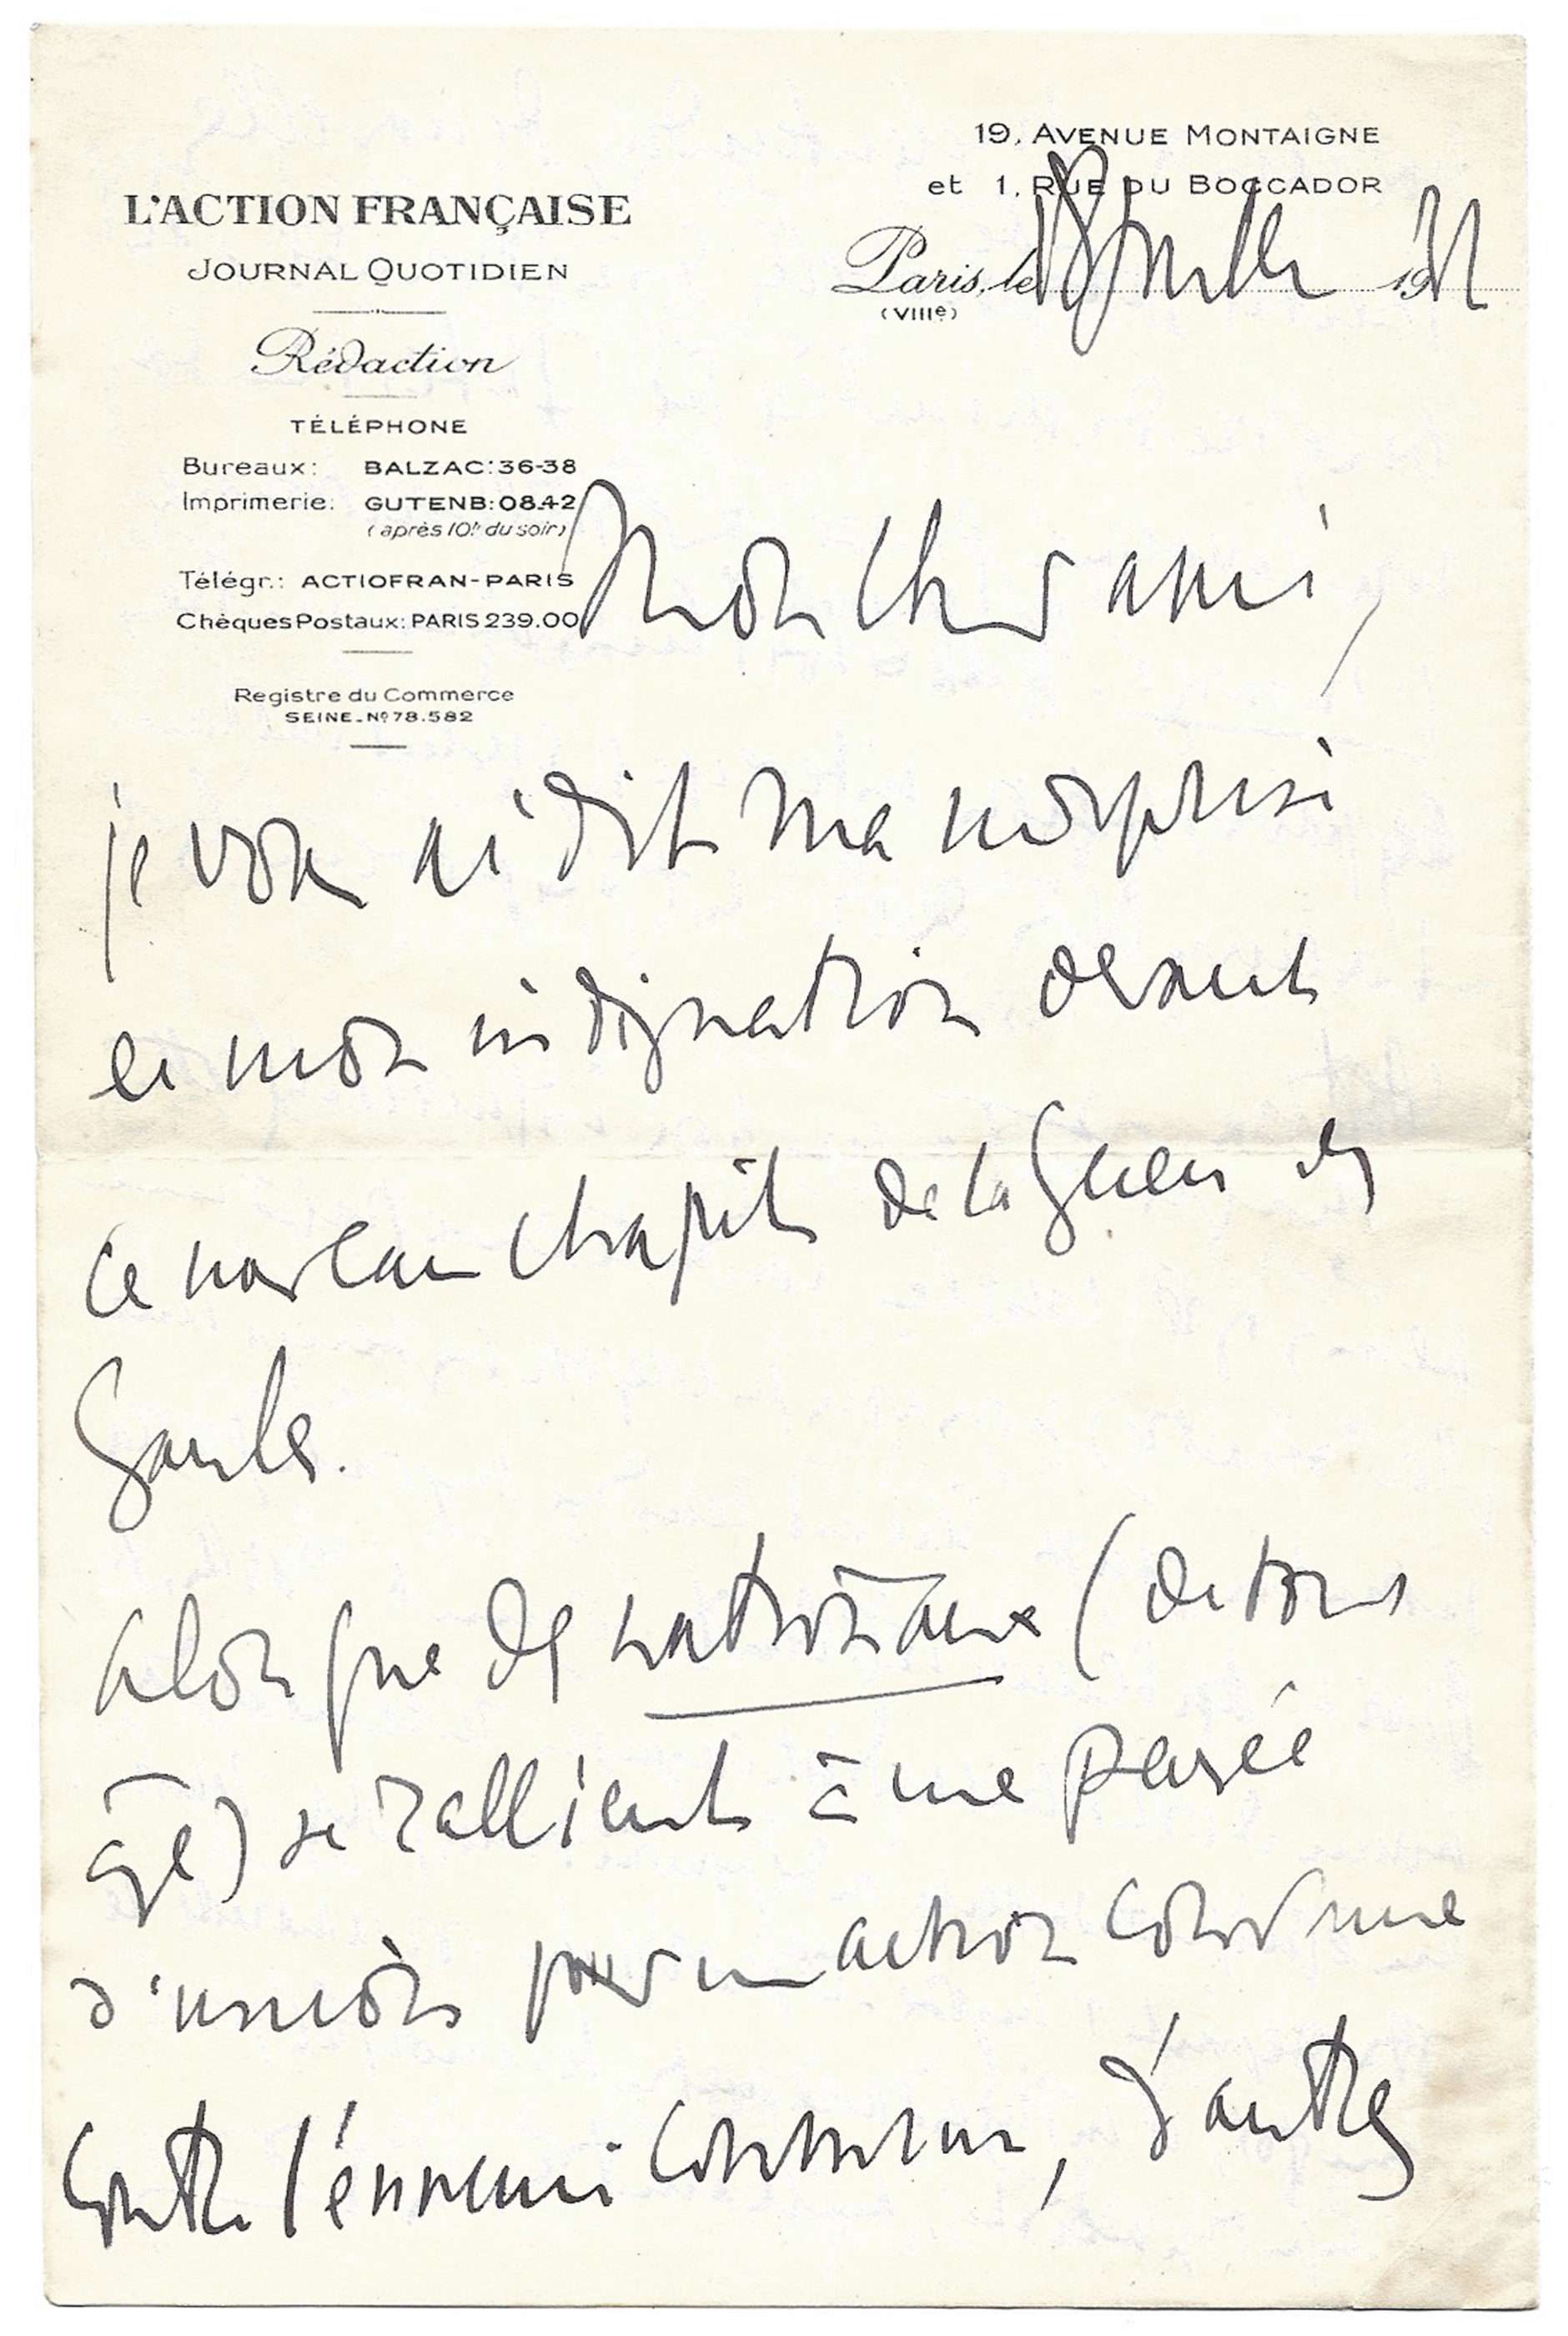 19, AVENUE MONTAIGNE
et 1, RUE DU BOCCADOR
L'ACTION FRANÇAISE
JOURNAL QUOTIDIEN
Paris, le 18 juillet 1931
(VIIIe)
Rédaction
TÉLÉPHONE
Bureaux: BALZAC: 36-38
Imprimerie: GUTENB: 08.42
(après 10h du soir)
Télégr.: ACTIOFRAN-PARIS
Chèques Postaux: PARIS 239.00
Registre du Commerce
SEINE_No 78.582
Mon cher ami,
je vous ai dit ma surprise
et mon indignation devant
ce nouveau chapitre de la Guerre des
Gaules.
Alors que des nationaux (de tous
âge) se rallient à une pensée
d'union pour une action commune
contre l'ennemi commun, d'autres